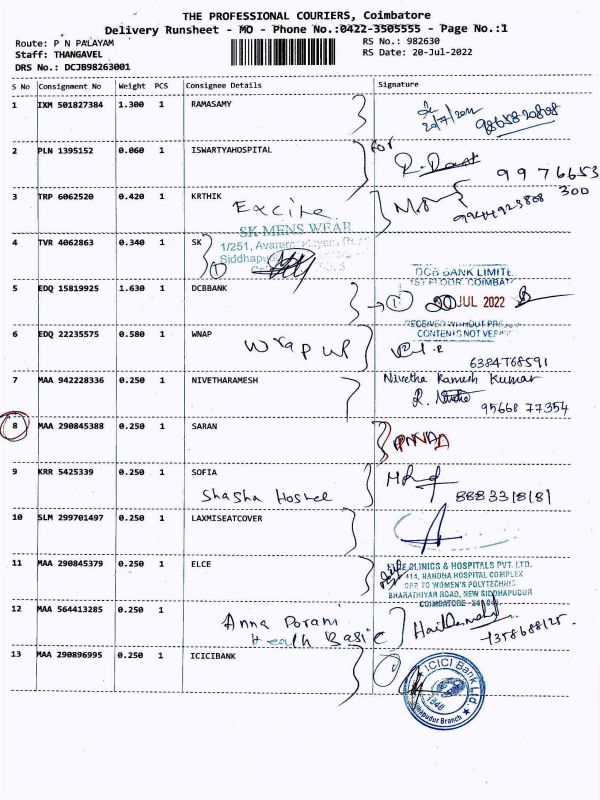 THE PROFESSIONAL COURIERS, Coimbatore
Delivery Runsheet - MO - Phone No.:0422-3505555 - Page No.:1
Route: P N PALAYAM
Staff: THANGAVEL
DRS No.: DCJB98263001
RS No.: 982630
RS Date: 20-Jul-2022
S No Consignment No Weight PCS Consignee Details Signature
1 IXM 501827384 1.300 1 RAMASAMY
98658 20808
2 PLN 1395152 0.060 1 ISWARTYAHOSPITAL
for
9976653
300
3 TRP 6062520 0.420 1 KRTHIK
Excite
SK MENS WEAR
4 TVR 4062863 0.340 1 SK
1/251,
1
DCB BANK LIMITE
1ST FLOOR, COIMBAT
5 EDQ 15819925 1.630 1 DCBBANK
1
20 JUL 2022
RECEIVED WITHOUT
CONTENTS NOT
6 EDQ 22235575 0.580 1 WNAP
Wrap up
6384768591
7 MAA 942228336 0.250 1 NIVETHARAMESH
Nivetha Ramesh Kumar
95668 77354
8 MAA 290845388 0.250 1 SARAN
9 KRR 5425339 0.250 1 SOFIA
Shasha Hostel
8883318181
10 SLM 299701497 0.250 1 LAXMISEATCOVER
11 MAA 290845379 0.250 1 ELCE
CLINICS & HOSPITALS PVT. LTD.
414, NANDHA HOSPITAL COMPLEX
OPP TO WOMEN'S POLYTECHNIC
BHARATHIYAR ROAD, NEW SIDDHAPUDUR
COIMBATORE
12 MAA 564413285 0.250 1
Anna Porani
Health Basic
13 MAA 290896995 0.250 1 ICICIBANK
ICICI Bank Ltd.
Branch